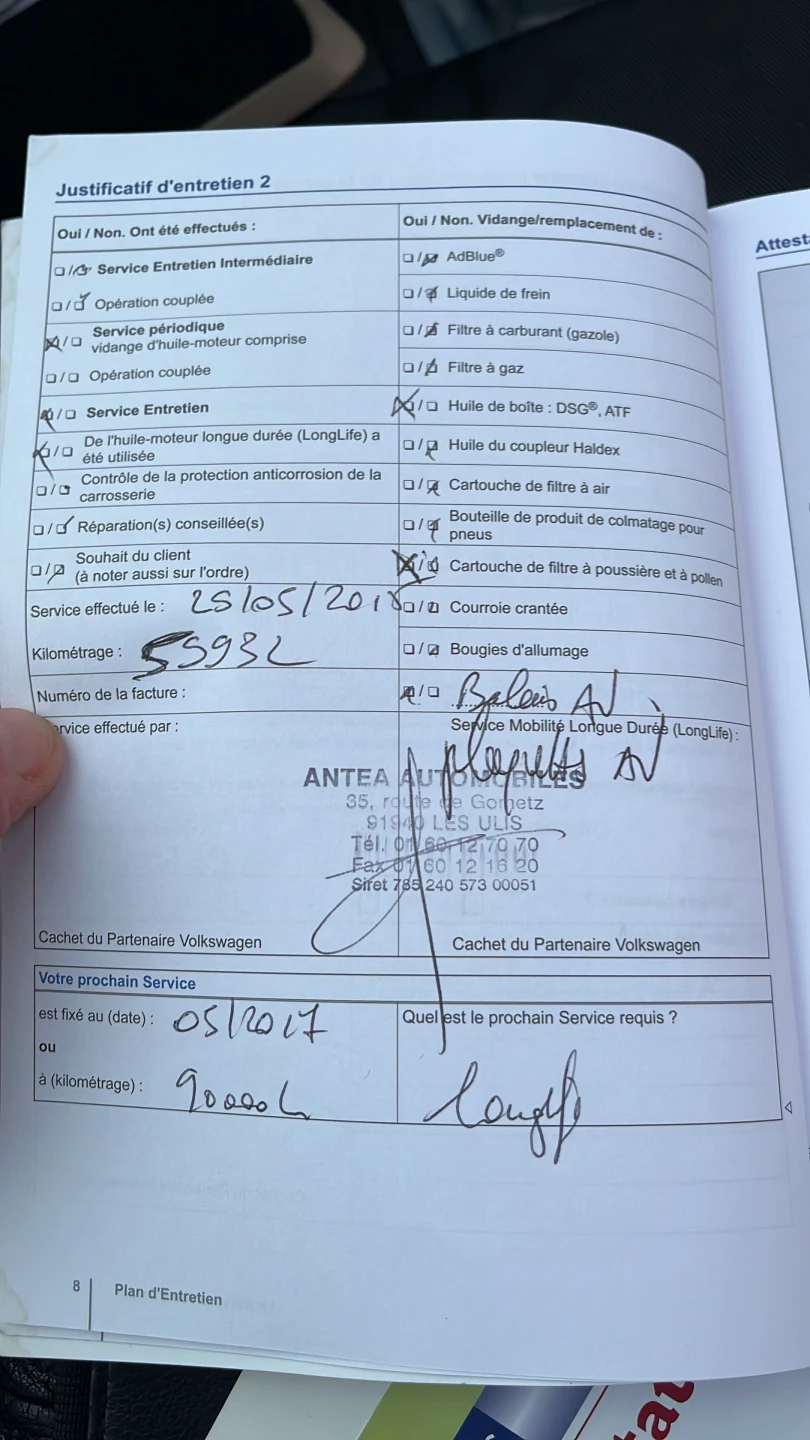 Justificatif d'entretien 2
Oui / Non. Ont été effectués :
Service Entretien Intermédiaire
Opération couplée
Service périodique
vidange d'huile-moteur comprise
Opération couplée
Service Entretien
De l'huile-moteur longue durée (LongLife) a
été utilisée
Contrôle de la protection anticorrosion de la
carrosserie
Réparation(s) conseillée(s)
Souhait du client
(à noter aussi sur l'ordre)
Service effectué le : 25/05/201
Kilométrage : 55932
Numéro de la facture :
rvice effectué par :
Oui / Non. Vidange/remplacement de :
AdBlue®
Liquide de frein
Filtre à carburant (gazole)
Filtre à gaz
Huile de boîte : DSG®, ATF
Huile du coupleur Haldex
Cartouche de filtre à air
Bouteille de produit de colmatage pour
pneus
Cartouche de filtre à poussière et à pollen
Courroie crantée
Bougies d'allumage
Balais AV
Service Mobilité Longue Durée (LongLife) :
plaquettes AV
ANTEA AUTOMOBILES
35, route de Gometz
91940 LES ULIS
Tél. 01 60 12 70 70
Fax 01 60 12 16 20
Siret 785 240 573 00051
Cachet du Partenaire Volkswagen
Cachet du Partenaire Volkswagen
Votre prochain Service
est fixé au (date) : 05/2017
ou
à (kilométrage) : 90000
Quel est le prochain Service requis ?
Longlife
8
Plan d'Entretien
Attest